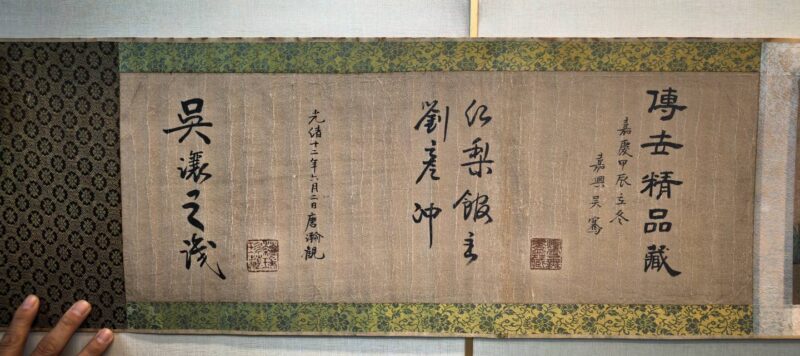 傳世精品藏
嘉慶甲辰立冬
嘉興吳騫
紅梨館主
劉彥沖
光緒十二年六月二日唐瀚觀
吳讓之識